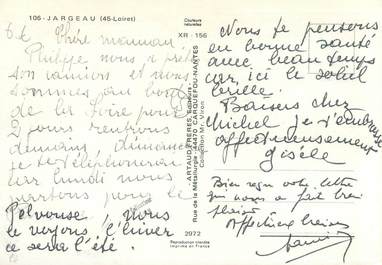 106 - JARGEAU (45-Loiret)
Couleurs naturelles
XR - 156
6h Chère maman.
Philippe nous a
son camion et nous
sommes au bord
de la Loire pour
2 jours rentrons
demain, dimanche
je te téléphonerai
car lundi nous
partons pour le
Pelvouse, nous
le voyons l'hiver
ce sera l'été.
ARTAUD FRERES EDITEURS
Rue de la Métallurgie 44470 CARQUEFOU-NANTES
Collection Mr. Viron
2972
Reproduction interdite
Imprimé en France
Nous te pensons
en bonne santé
avec beau temps
car, ici le soleil
brille.
Baisers chez
Michel, je t'embrasse
affectueusement
gisèle
Bien reçu votre lettre
qui nous a fait
plaisir